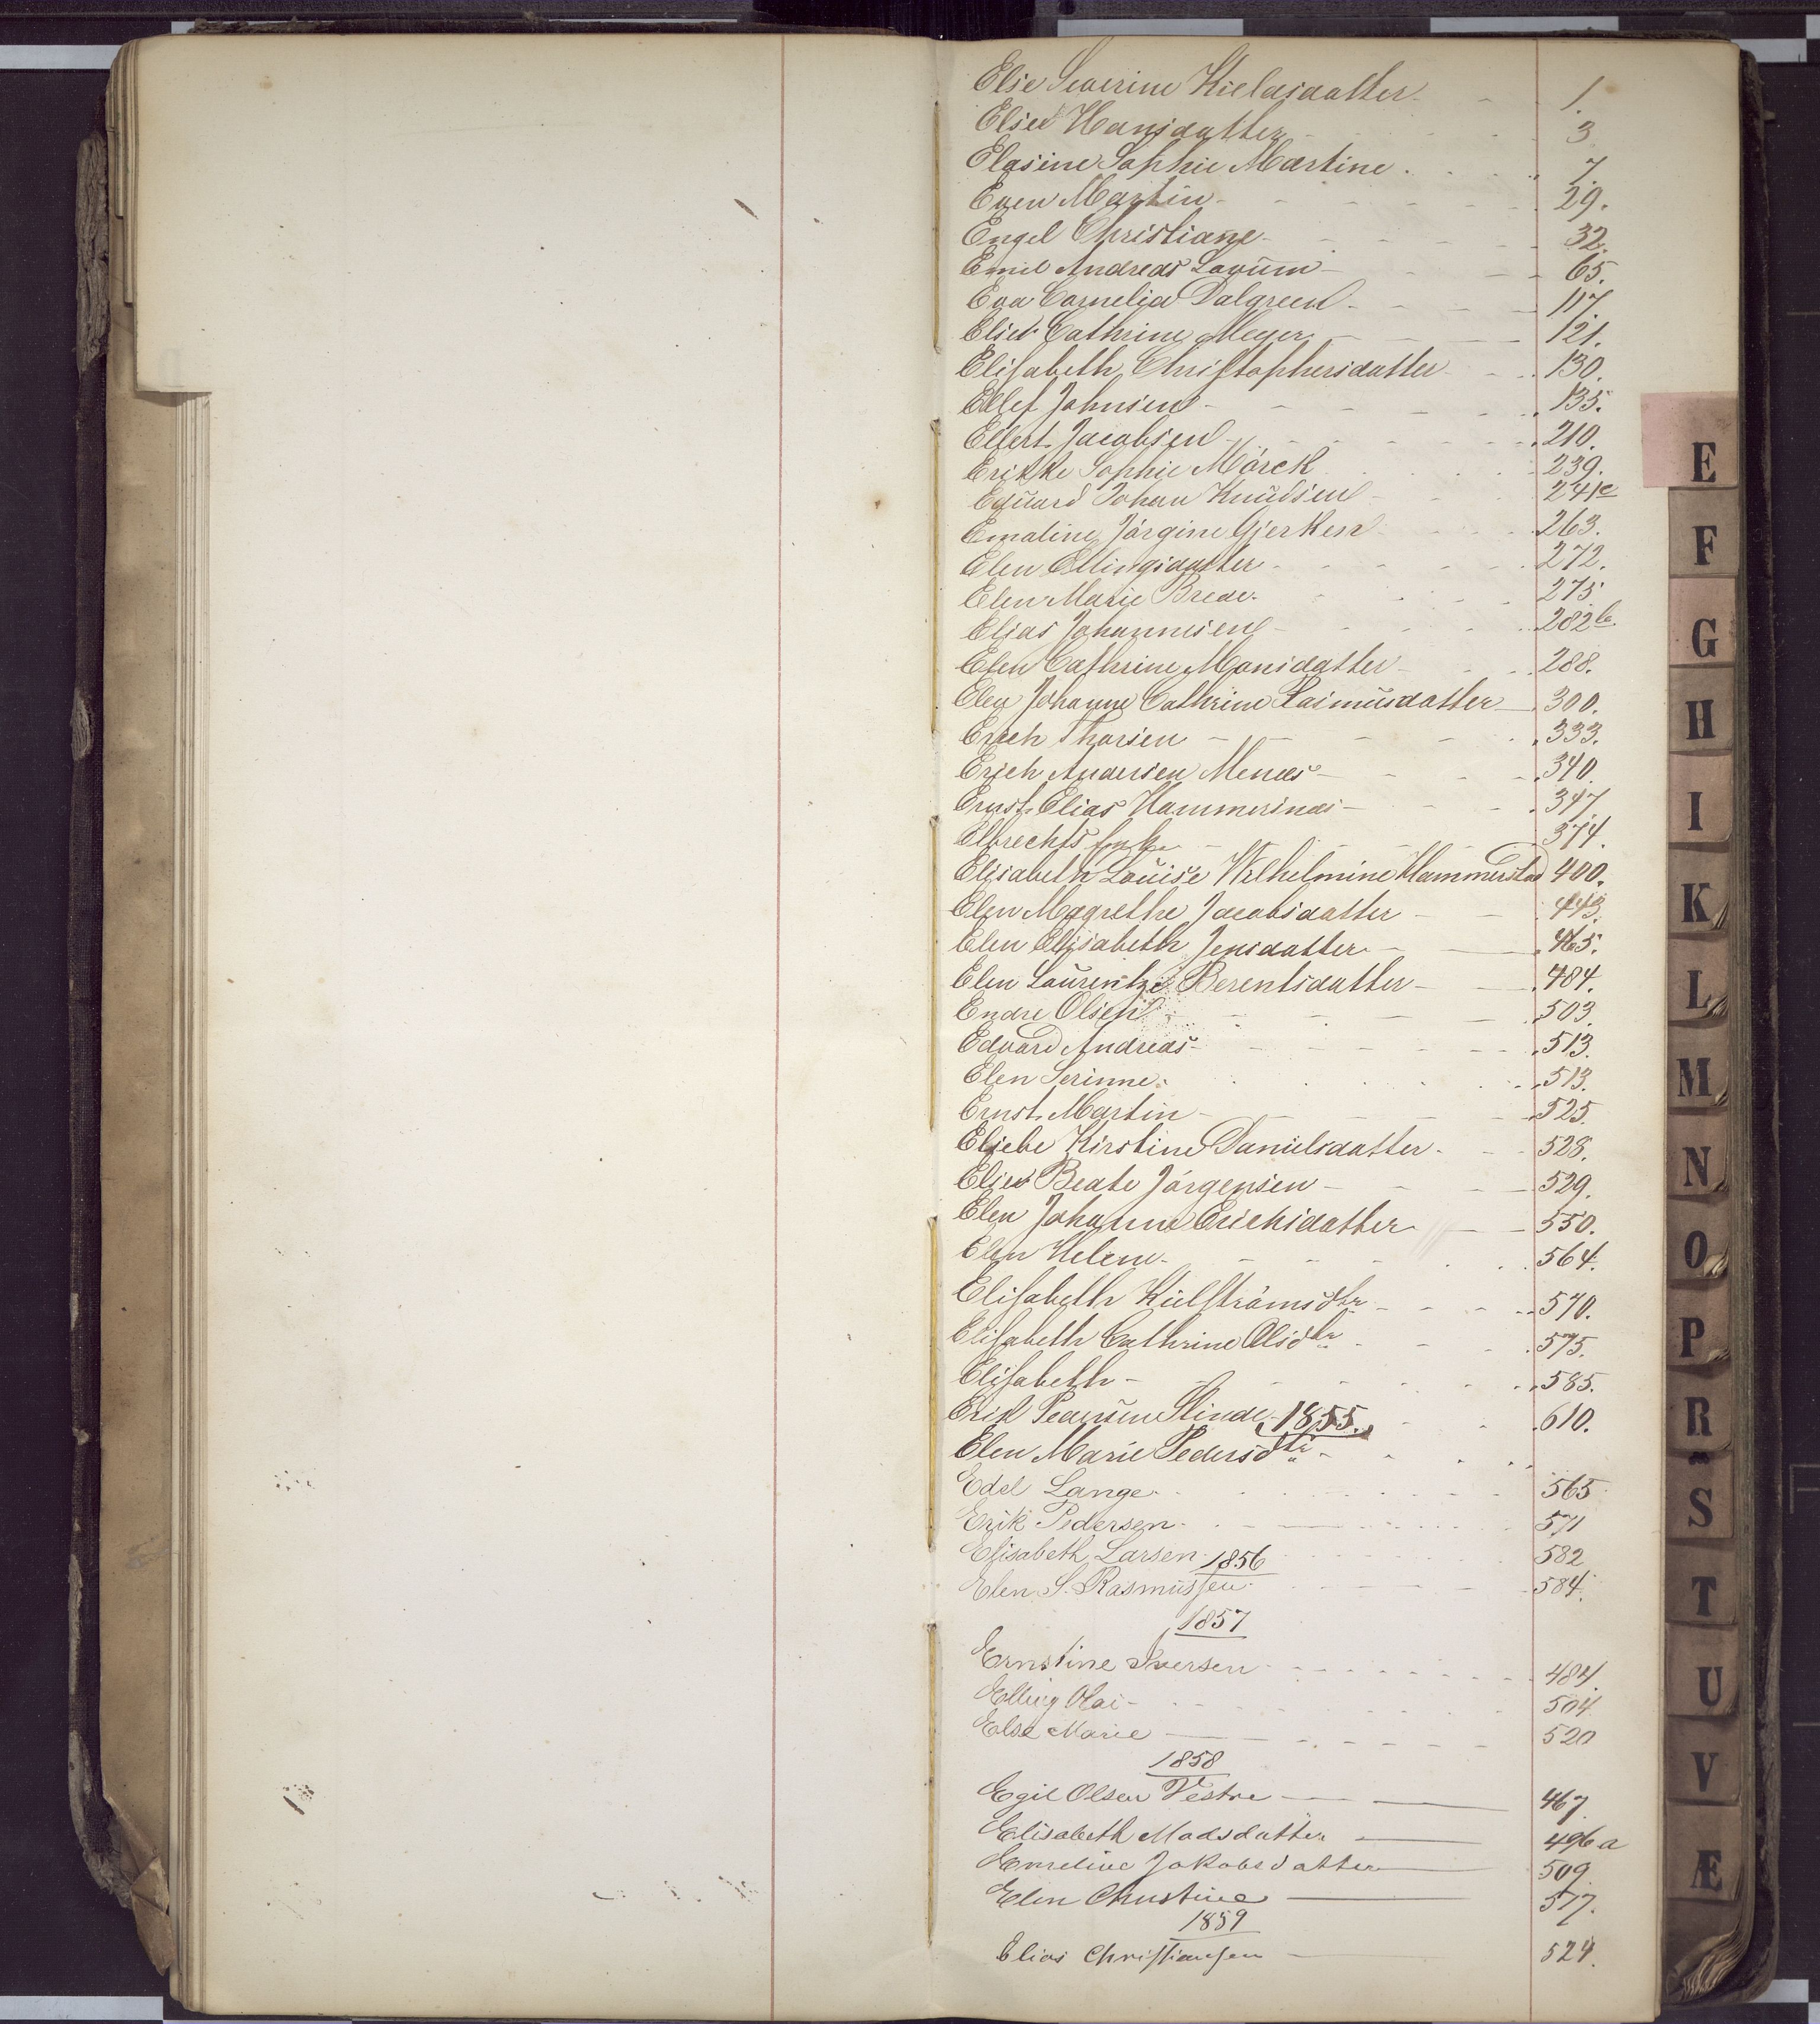 Else Severine Kieldsdatter - - 1.
Elsed Hansdatter - - - 3
Elasine Sophie Martine . . . „ 7.
Even Martin - - - - - 29.
Engel Christiane - - - - - 32.
Emil Andreas Lovum - - - 65.
Eva Cornelia Dalgreen - - - 117.
Elise Cathrine Meyer - - - 121.
Elisabeth Christophersdatter - - 130.
Ellef Johnsen - - - - - 135.
Ellert Jacobsen - - - - 210.
Erikke Sophie Mörck . . . . 239.
Eduard Johan Knudsen - - 241c
Emaline Jörgine Gjerken - - 263.
Elen Ellingsdatter - - - - 272.
Elen Marie Brede - - - 275
Elias Johannesen - - - - 282b.
Elen Cathrine Monsdatter - - 288.
Elen Johanne Cathrine Rasmusdatter - 300.
Erich Thorsen - - - - - 333.
Erich Andersen Menes - - - 340.
Ernst Elias Hammerinas - - - 347.
Elbrechts - - - - 374.
Elisabeth Louise Wilhelmine Hammerstad 400.
Elen Magrethe Jacobsdatter - - 443.
Elen Elisabeth Jensdatter - - 465.
Elen Laurentze Berentsdatter - - 484.
Endre Olsen - - - - 503.
Edvard Andreas - - - - - 513.
Elen Serinne . . . . . 513.
Ernst Martin - - - - - 525.
Elsebe Kirstine Danielsdatter - - 528.
Elise Beate Jörgensen - - - 529.
Elen Johanne Erichsdatter - - 550.
Elen Helene - - - - - 564.
Elisabeth Kielströmsdtr - - - 570.
Elisabeth Cathrine Olsdtr - - - 575.
Elisabeth - - - - - - 585.
Erik Pedersen Slinde 1855. - - 610.
Elen Marie Pedersdtr - - - -
Edel Lange - - - - - - 565
Erik Pedersen - - - - - 571
Elisabeth Larsen 1856 - - - - 582
Elen S. Rasmussen - - - - 584.
1857
Ernstine Iversen - - - - - 484.
Elling Olai - - - - - 504
Else Marie - - - - - - 520
1858
Egil Olsen Vestre - - - 467.
Elisabeth Madsdatter - 496a
Emeline Jakobsdatter - 509.
Elen Christine - 517.
1859
Elias Christiansen - 524.
E
F
G
H
I
K
L
M
N
O
P
R
S
T
U
V
Æ